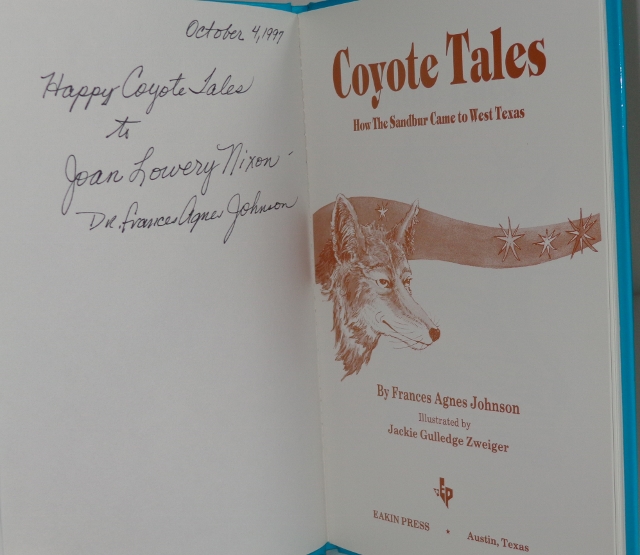 October 4, 1997
Happy Coyote Tales
to
Joan Lowery Nixon -
Dr. Frances Agnes Johnson
Coyote Tales
How The Sandbur Came to West Texas
By Frances Agnes Johnson
Illustrated by
Jackie Gulledge Zweiger
EP
EAKIN PRESS * Austin, Texas